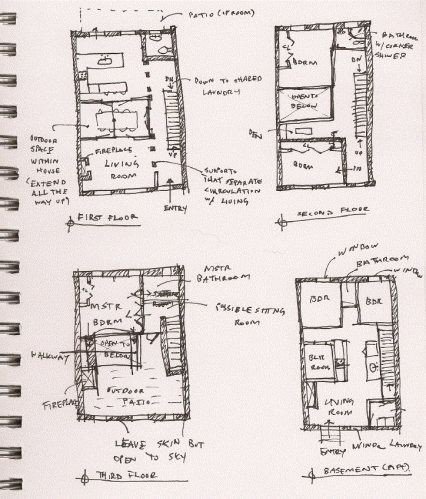 PATIO (IF ROOM)
DN
DOWN TO SHARED
LAUNDRY
OUTDOOR
SPACE
WITHIN
HOUSE
(EXTEND
ALL THE
WAY UP)
FIREPLACE
LIVING
ROOM
UP
SUPPORTS
THAT SEPARATE
CIRCULATION
W/ LIVING
ENTRY
FIRST FLOOR
BATHROOM
W/ CORNER
SHOWER
BDRM
DN
OPEN TO
BELOW
DEN
UP
BDRM
SECOND FLOOR
MSTR
BATHROOM
MSTR
BDRM
POSSIBLE SITTING
ROOM
WALKWAY
OPEN TO
BELOW
FIREPLACE
OUTDOOR
PATIO
LEAVE SKIN BUT
OPEN TO SKY
THIRD FLOOR
WINDOW
BATHROOM
BDR
BDR
ROOM
LIVING
ROOM
ENTRY
LAUNDRY
BASEMENT (APT)